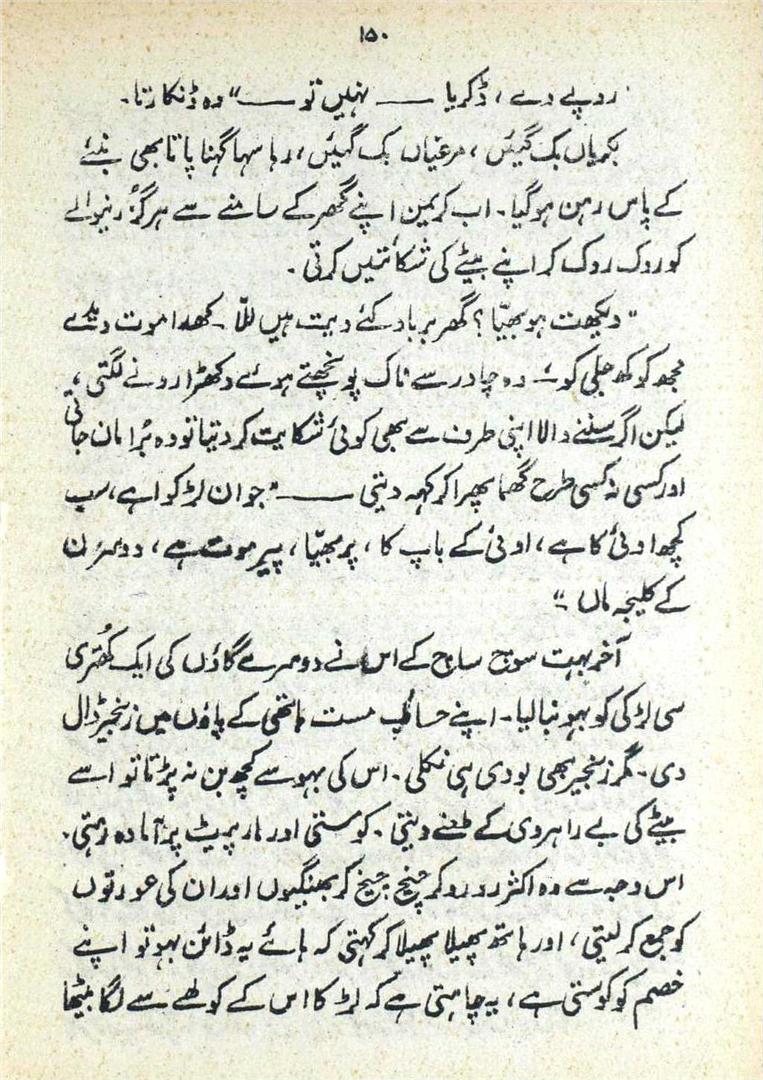 ۱۵۰
روپے دے، ڈکریا ــــ نہیں تو ــــ" وہ ڈنکارتا۔
بکریاں بک گیئں، مرغیاں بک گیئں، رہا سہا گہنا پاتا بھی بنئے
کے پاس رہن ہوگیا۔ اب کریمن اپنے گھر کے سامنے سے ہر گزرنیوالے
کو روک روک کر اپنے بیٹے کی شکائتیں کرتی۔
"دیکھت ہو بھیّا؟ گھر برباد کئے دیت ہیں للّا۔ کھدا موت دیدے
مجھ کوکھ جلی کو۔" وہ چادر سے ناک پونچھتے ہوئے دکھڑا رونے لگتی،
لیکن اگر سننے والا اپنی طرف سے بھی کوئی شکایت کر دیتا تو وہ بُرا مان جاتی
اور کسی نہ کسی طرح گھما پھرا کر کہہ دیتی ــــ "جوان لڑکوا ہے، سب
کچھ اوئی کا ہے، اوئی کے باپ کا، پر بھیّا، پیر موت ہے، دوسرن
کے کلیجہ ماں۔"
آخر بہت سوچ ساچ کے اس نے دوسرے گاؤں کی ایک کھُتری
سی لڑکی کو بہو بنا لیا۔ اپنے حساب مست ہاتھی کے پاؤں میں زنجیر ڈال
دی۔ مگر زنجیر بھی بودی ہی نکلی۔ اس کی بہو سے کچھ بن نہ پڑتا تو اسے
بیٹے کی بے راہروی کے طعنے دیتی۔ کوستی اور مار پیٹ پر آمادہ رہتی۔
اس وجہ سے وہ اکثر رو رو کر چیخ چیخ کر بھنگیوں اور ان کی عورتوں
کو جمع کر لیتی، اور ہاتھ پھیلا پھیلا کر کہتی کہ ہائے یہ ڈائن بہو تو اپنے
خصم کو کوستی ہے، یہ چاہتی ہے کہ لڑکا اس کے کولھے سے لگا بیٹھا